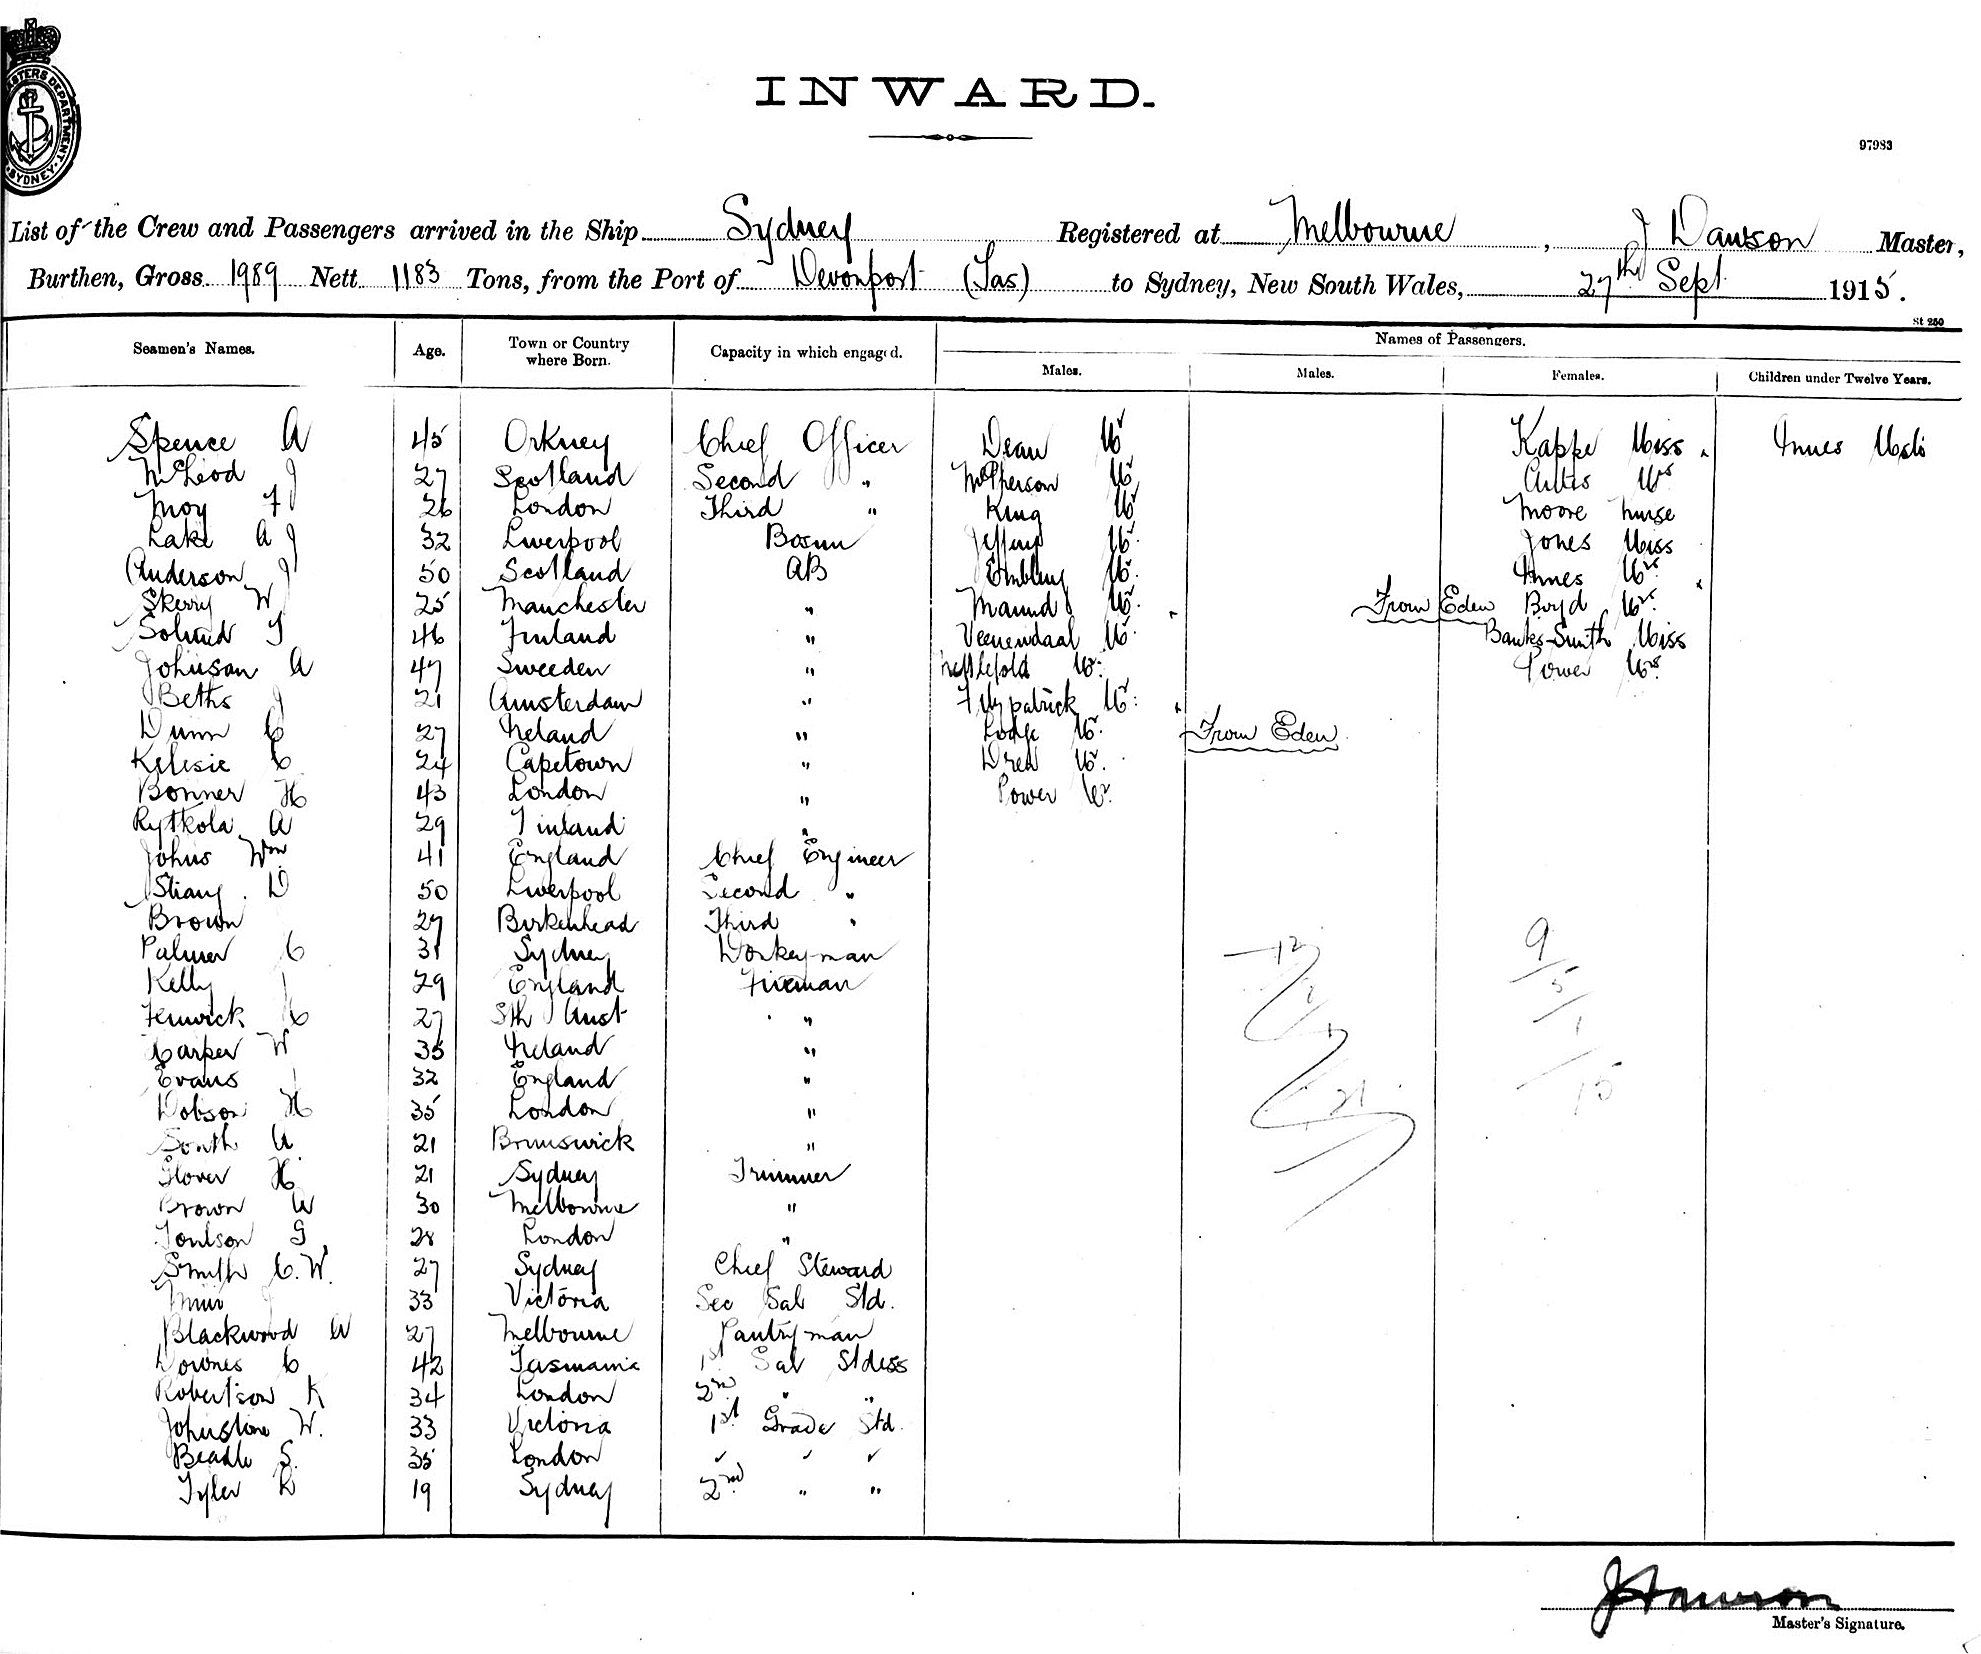 INWARD.
97983
List of the Crew and Passengers arrived in the Ship Sydney Registered at Melbourne, J Dawson Master,
Burthen, Gross 1989 Nett 1183 Tons, from the Port of Devonport (Tas) to Sydney, New South Wales, 27th Sept 1915.
St 250
Seamen's Names. Age. Town or Country where Born. Capacity in which engaged. Names of Passengers.
Males. Males. Females. Children under Twelve Years.
Spence A 45 Orkney Chief Officer Dean Mr Kappe Miss Innes
McLeod J 27 Scotland Second " McPherson Mr Mrs
Moy F 26 London Third " King Mr Moore Nurse
Lake A J 32 Liverpool Bosun Mr Jones Miss
Anderson J 50 Scotland AB Embling Mr Innes Mrs
Skerry W 25 Manchester " Maund Mr From Eden Boyd Mrs
T 46 Finland " Veenendaal Mr Banks-Smith Miss
Johnson A 47 Sweeden " Nettlefold Mr Power Mrs
Beths J 21 Amsterdam " Fitzpatrick Mr
Dunn C 27 Ireland " Lodge Mr From Eden
C 24 Capetown " Drew Mr
Bonner H 43 London " Power Mr
Rytkola A 29 Finland "
Johns Wm 41 England Chief Engineer
Strang D 50 Liverpool Second "
Brown 27 Birkenhead Third "
Palmer C 31 Sydney Donkeyman
Kelly J 29 England Fireman
Fenwick H 27 Sth Aust "
Harper W 35 Ireland "
Evans J 32 England "
Dobson H 35 London "
South A 21 Brunswick "
Glover H 21 Sydney Trimmer
Brown W 30 Melbourne "
Toulson G 28 London "
Smith C.W. 27 Sydney Chief Steward
Muir J 33 Victoria Sec Sal Std.
Blackwood W 27 Melbourne Pantryman
Downes C 42 Tasmania 1st Sal Stdess
Robertson K 34 London 2nd " "
Johnstone W. 33 Victoria 1st Grade Std.
Beadle S. 35 London " " "
Tyler R 19 Sydney 2nd " "
12 9
5
1 1
21 15
J Dawson
Master's Signature.